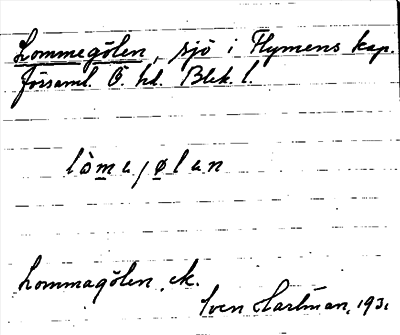 Lommegölen, sjö i Flymens kap.
församl. Ö hd. Blek. l.
lòmajølan
Lommagölen, ek.
Sven Hartman, 193.